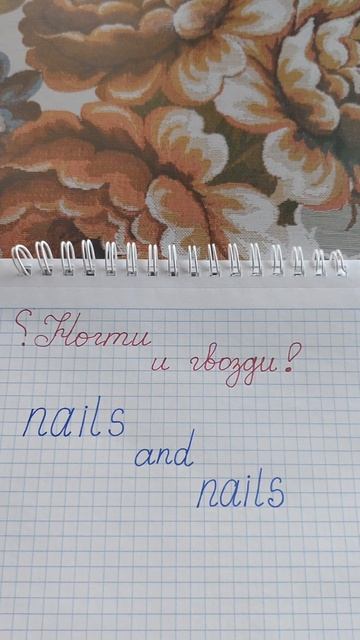 ⸮Ногти
и гвозди?
nails
and
nails